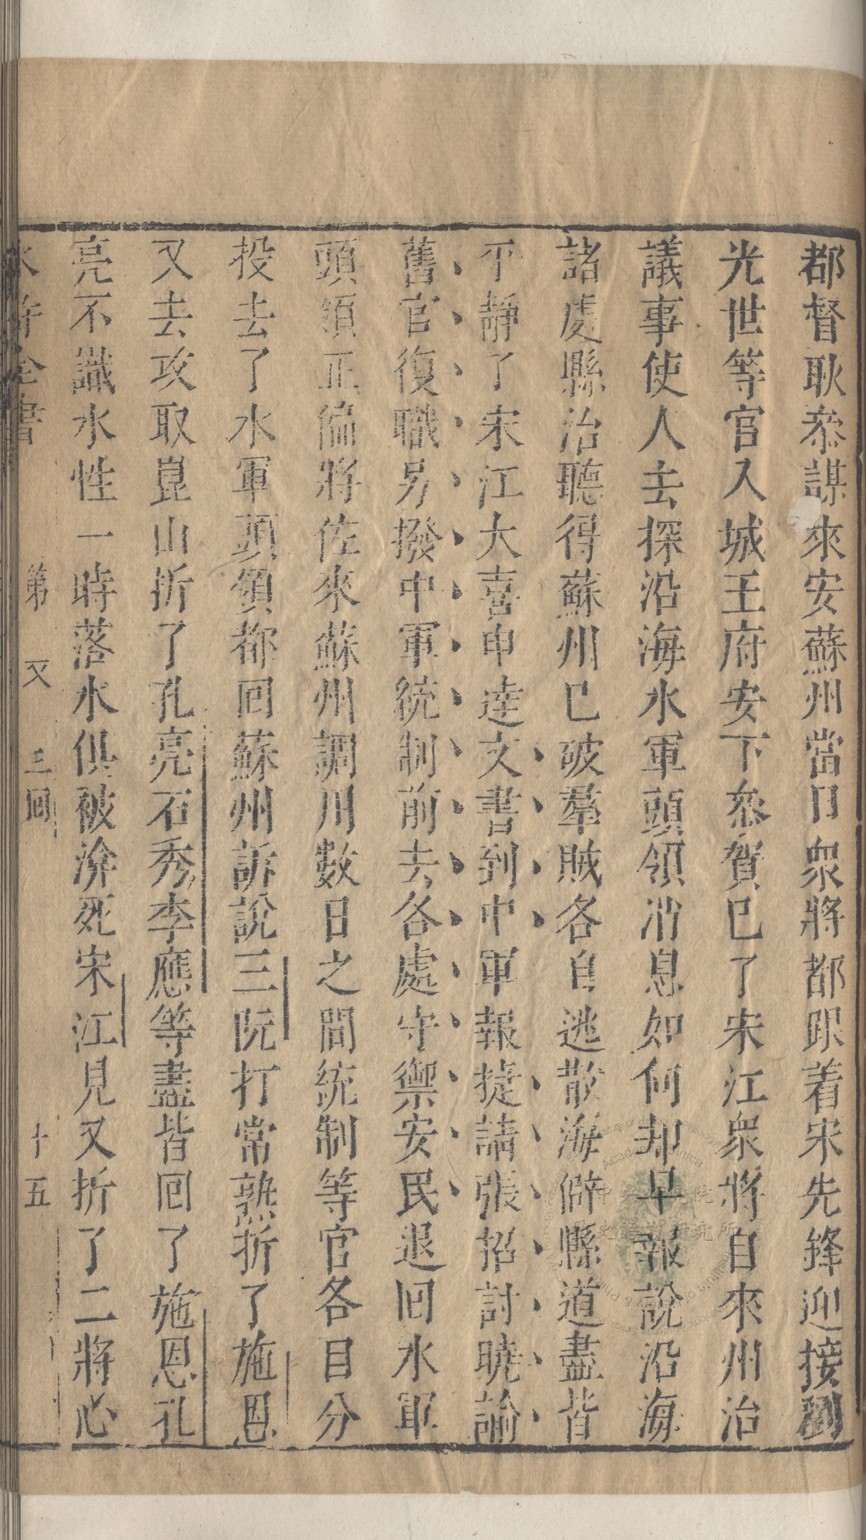 都督耿叅謀來安蘇州當日衆將都跟着宋先鋒迎接劉
光世等官入城王府安下叅賀已了宋江衆將自來州治
議事使人去探沿海水軍頭領消息如何却早報說沿海
諸處縣治聽得蘇州已破羣賊各自逃散海僻縣道盡皆
平静了宋江大喜申達文書到中軍報捷請張招討曉諭
舊官復職另撥中軍統制前去各處守禦安民退回水軍
頭領正偏將佐來蘇州調用數日之間統制等官各自分
投去了水軍頭領都回蘇州訴說三阮打常熟折了施恩
又去攻取崑山折了孔亮石秀李應等盡皆回了施恩孔
亮不識水性一時落水俱被渰死宋江見又折了二將心
水滸全書 第 三回 十五